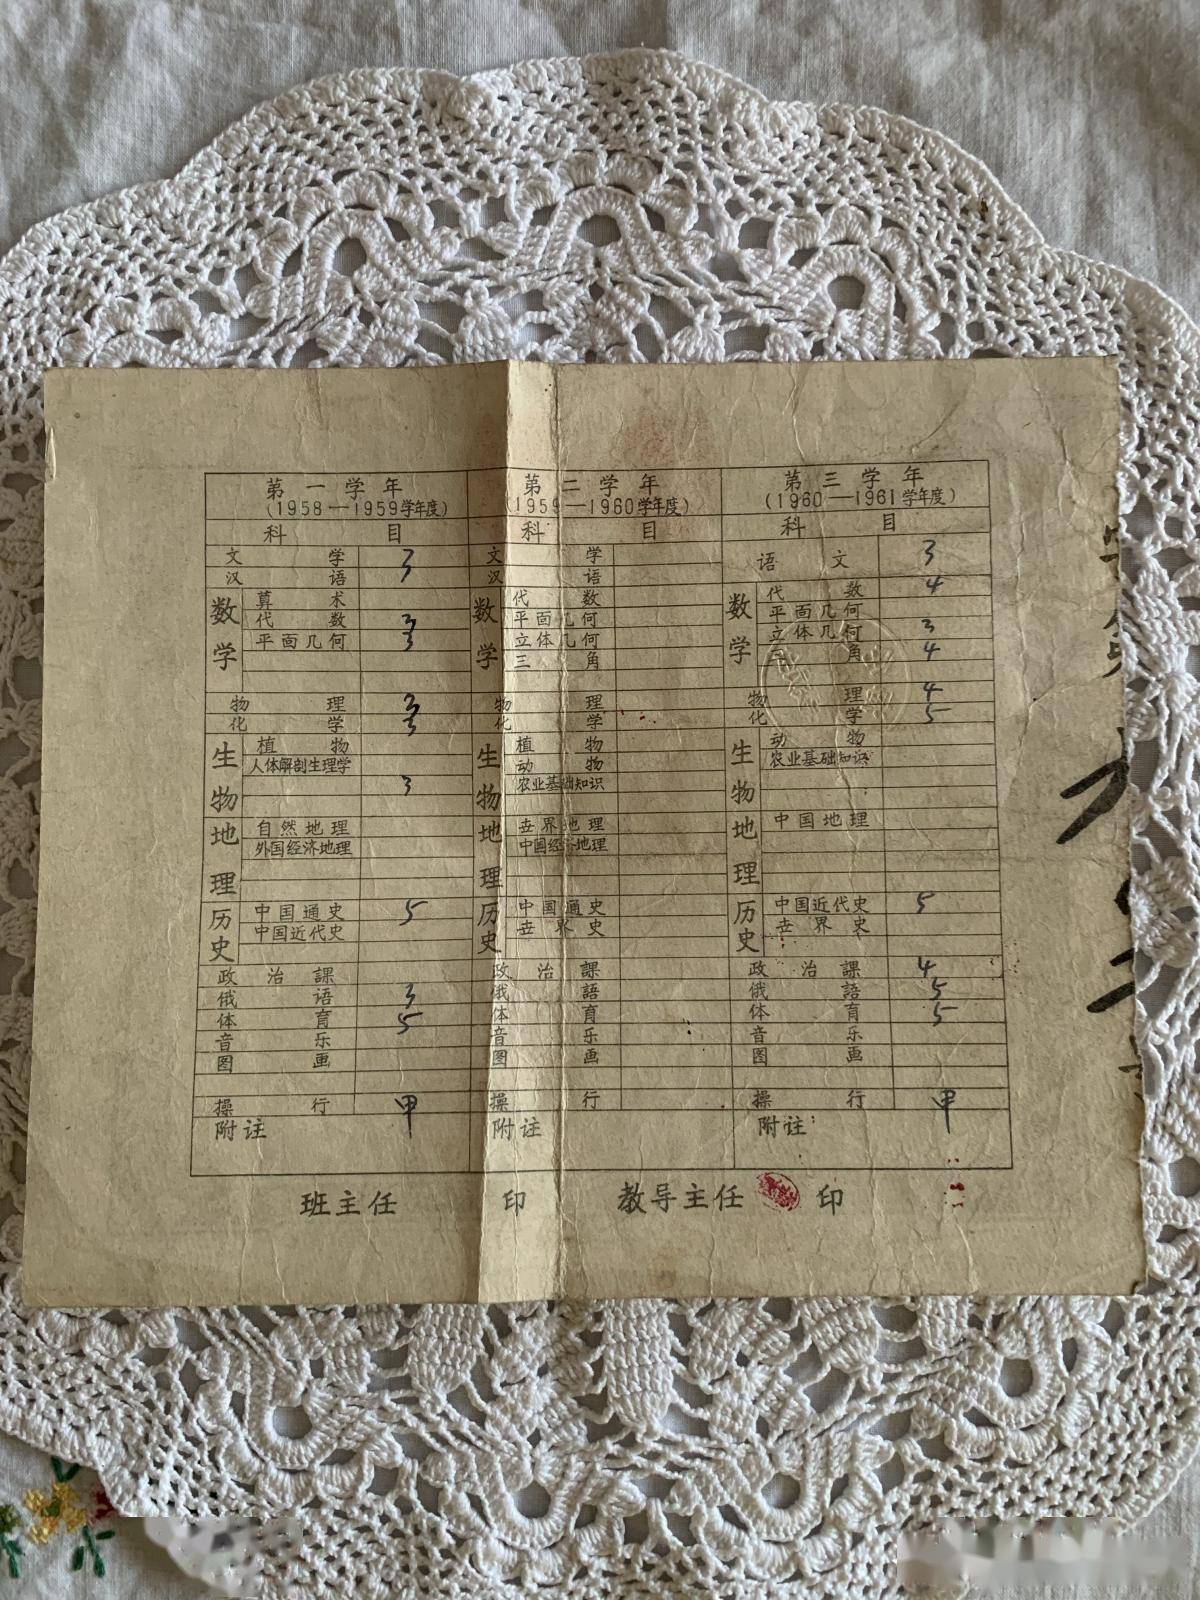 第一学年 第二学年 第三学年
(1958—1959学年度) (1959—1960学年度) (1960—1961学年度)
科目 科目 科目
文学 3 文学 语文 3
汉语 汉语
数学 数学 数学
算术 代数 代数 4
代数 3 平面几何 平面几何
平面几何 3 立体几何 立体几何 3
三角 三角 4
物理 3 物理 物理 4
化学 3 化学 化学 5
生物 生物 生物
植物 植物 动物
人体解剖生理学 动物 农业基础知识
3 农业基础知识
地理 地理 地理
自然地理 世界地理 中国地理
外国经济地理 中国经济地理
历史 历史 历史
中国通史 5 中国通史 中国近代史 5
中国近代史 世界史 世界史
政治課 政治課 政治課 4
俄语 3 俄語 俄語 5
体育 5 体育 体育 5
音乐 音乐 音乐
图画 图画 图画
操行 甲 操行 操行 甲
附注 附注 附注:
班主任 印 教导主任 印